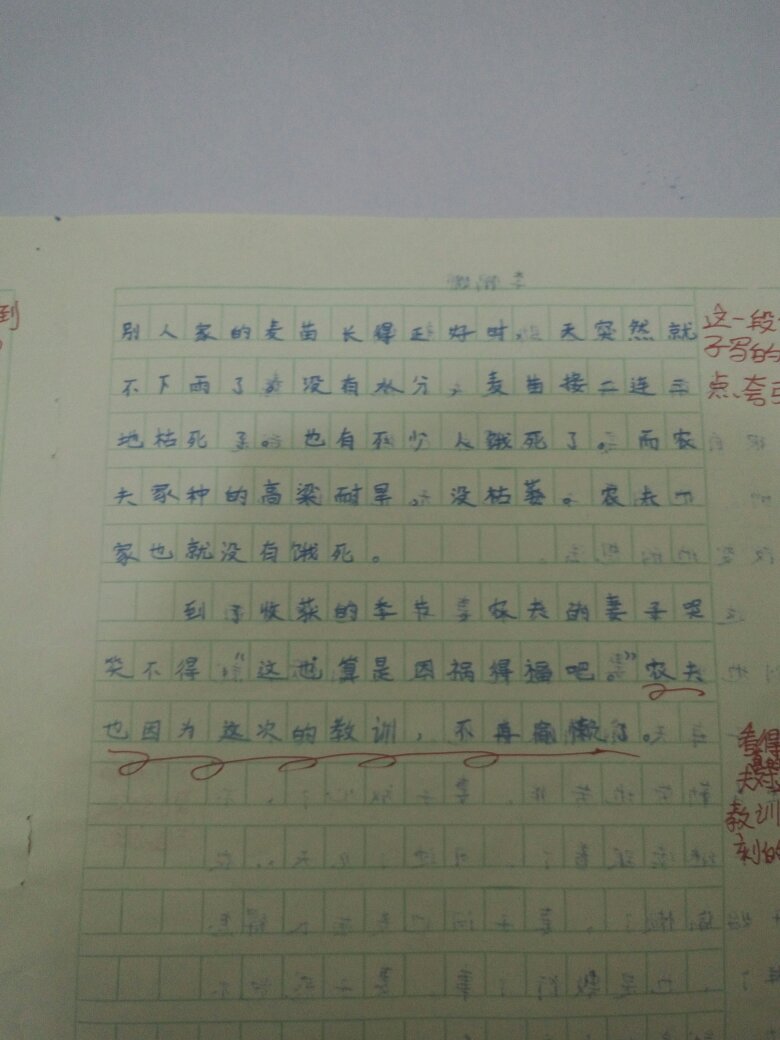 到
别人家的麦苗长得正好时，天突然就
不下雨了，没有水分，麦苗接二连三
地枯死了。也有不少人饿死了。而农
夫家种的高梁耐旱。没枯萎。农夫一
家也就没有饿死。
到了收获的季节，农夫的妻子哭
笑不得“这也算是因祸得福吧。”农夫
也因为这次的教训，不再偷懒了。
这一段
子写的
点，夸
看得
教训
刻的